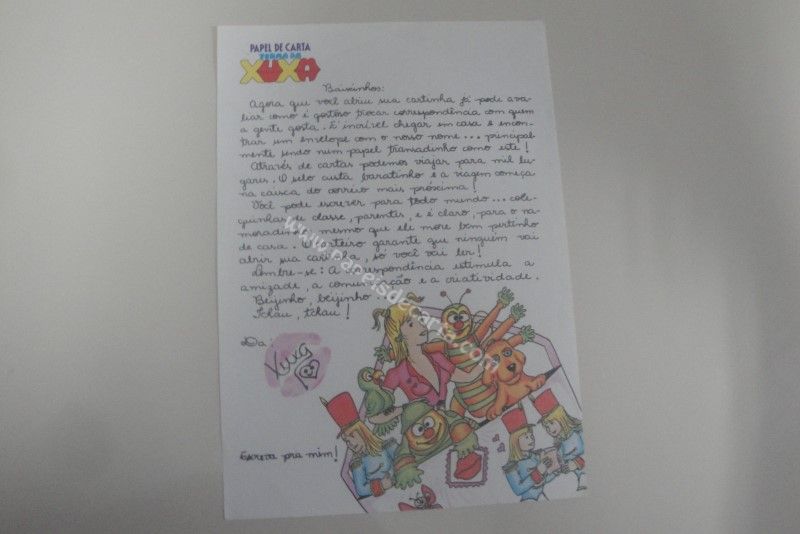 PAPEL DE CARTA
TURMA DA
XUXA
Baixinhos:
Agora que você abriu sua cartinha já pode ava-
liar como é gostoso trocar correspondência com quem
a gente gosta. É incrível chegar em casa e encon-
trar um envelope com o nosso nome... principal-
mente sendo num papel transadinho como este!
Através de cartas podemos viajar para mil lu-
gares. O selo custa baratinho e a viagem começa
na caixa do correio mais próxima!
Você pode escrever para todo mundo... cole-
guinhas de classe, parentes, e é claro, para o na-
moradinho, mesmo que ele more bem pertinho
de casa. O carteiro garante que ninguém vai
abrir sua cartinha, só você vai ler!
Lembre-se: A correspondência estimula a
amizade, a comunicação e a criatividade.
Beijinho, beijinho...
Tchau, tchau!
Da:
Xuxa
Escreva pra mim!
www.papeisdecarta.com